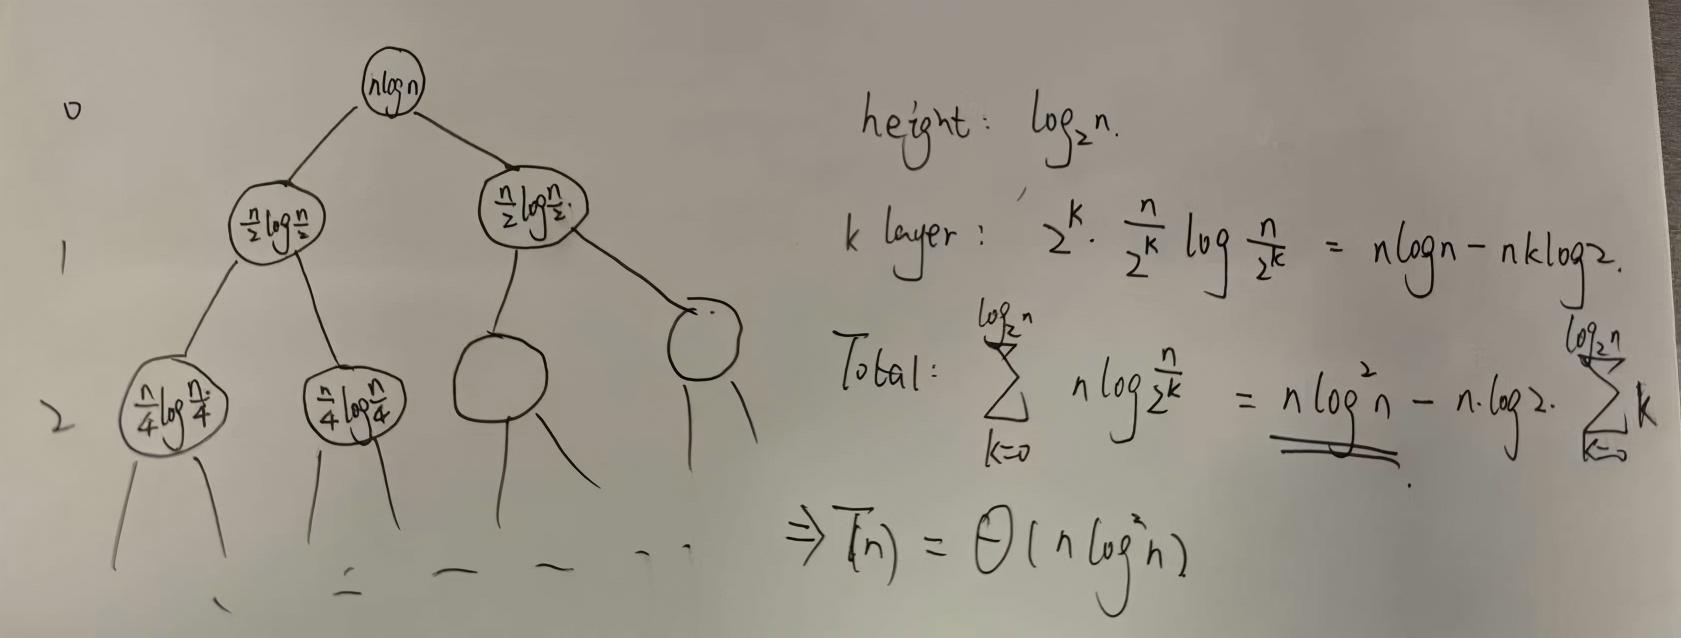 0
n log n
1
n/2 log n/2
n/2 log n/2
2
n/4 log n/4
n/4 log n/4
height: log₂n.
k layer: 2^k · n/2^k log n/2^k = n log n − nk log 2.
Total: ∑_{k=0}^{log₂n} n log n/2^k = n log² n − n·log 2· ∑_{k=0}^{log₂n} k
⇒ T(n) = Θ(n log² n)